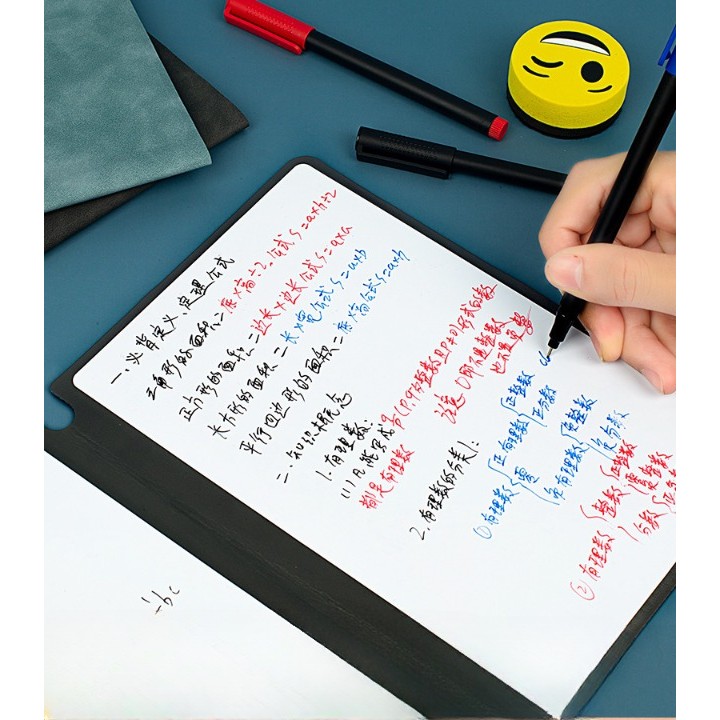 一.必背定义.定理公式
三角形的面积=底×高÷2.公式S=a×h÷2
正方形的面积=边长×边长公式S=a×a
长方形的面积=长×宽公式S=a×b
平行四边形的面积=底×高公式S=a×h
二.知识点概念
1.有理数:
(1)凡能写成
形式的数
都是有理数
注意:0即不是
2.有理数的分类:
①有理数
正有理数
正整数
正分数
零
负有理数
负整数
负分数
②有理数
整数
正整数
零
负整数
分数